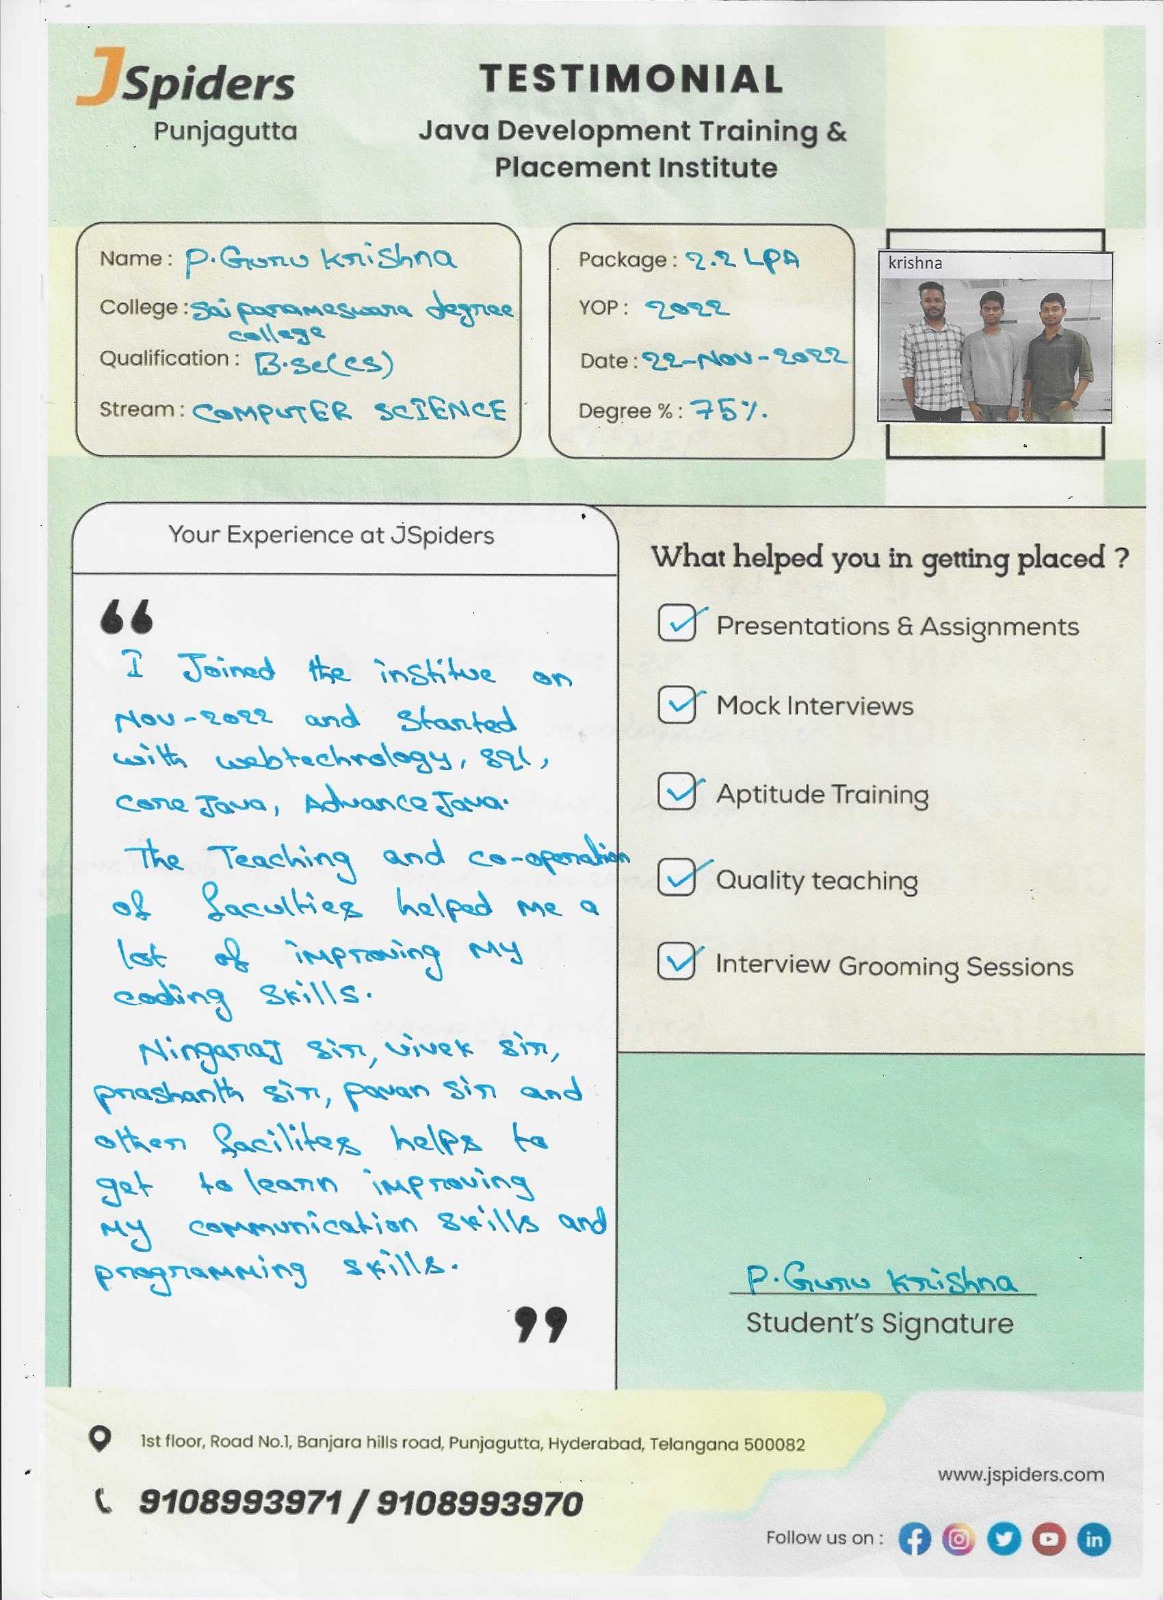 JSpiders
Punjagutta
TESTIMONIAL
Java Development Training &
Placement Institute
Name : P. Guru Krishna
College : Sai parameswara degree
college
Qualification : B.Sc(CS)
Stream : COMPUTER SCIENCE
Package : 2.2 LPA
YOP : 2022
Date : 22-Nov-2022
Degree % : 75%.
krishna
Your Experience at JSpiders
“
I Joined the institue on
Nov-2022 and Started
with webtechnology, sql,
Core Java, Advance Java.
The Teaching and co-operation
of faculties helped me a
lot of improving my
coding skills.
Ningaraj sir, vivek sir,
prashanth sir, pavan sir and
other facilites helps to
get to learn improving
my communication skills and
programming skills.
”
What helped you in getting placed ?
Presentations & Assignments
Mock Interviews
Aptitude Training
Quality teaching
Interview Grooming Sessions
P. Guru Krishna
Student's Signature
1st floor, Road No.1, Banjara hills road, Punjagutta, Hyderabad, Telangana 500082
9108993971 / 9108993970
www.jspiders.com
Follow us on :